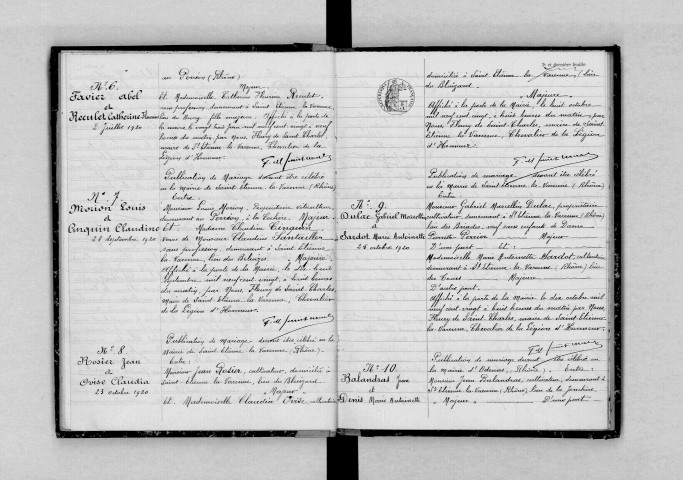 au Perréon (Rhône)
Nº 6.
Favier Abel
et
Reculet Catherine
2 juillet 1920
Majeur
Et Mademoiselle Catherine Reculet
sans profession, demeurant à Saint Etienne la Varenne,
lieu du Bourg, fille majeure. Affiché à la porte de
la mairie le vingt huit juin mil neuf cent vingt à neuf
heures du matin, par Nous, Fleury de Saint Charles,
maire de St Etienne la Varenne, Chevalier de la
Légion d'Honneur.
Publication de Mariage devant être célébré
en la mairie de Saint Etienne la Varenne (Rhône)
Entre
Nº 7
Morion Louis
et
Cinquin Claudine
28 septembre 1920
Monsieur Louis Morion, viticulteur,
demeurant au Perréon, à la Majeur
Et Madame Claudine Cinquin
veuve de Monsieur Claudius
sans profession, demeurant à Saint Etienne
la Varenne, lieu des Majeure
Affiché à la porte de la Mairie, le dix huit
septembre, mil neuf cent vingt, à huit heures
du matin, par Nous, Fleury de Saint Charles
Maire de Saint Etienne la Varenne, Chevalier
de la Légion d'Honneur.
Publication de mariage devant être célébré en la
Mairie de Saint Etienne la Varenne, (Rhône).
Entre:
Nº 8
Rosier Jean
et
Ovise Claudia
23 octobre 1920
Monsieur Jean Rosier, cultivateur, domicilié à
Saint Etienne la Varenne, lieu du Bluizard
" Majeur "
Et Mademoiselle Claudia Ovise, cultivatrice
2e et dernière feuille
domiciliée à Saint Etienne la Varenne, (lieu
de Bluizard.
" Majeure
Affiché à la porte de la Mairie, le huit octobre
mil neuf cent vingt, à huit heures du matin, par
Nous, Fleury de Saint Charles, maire de Saint
Etienne la Varenne, Chevalier de la Légion
d'Honneur.
Publication de mariage devant être célébré
en la Mairie de Saint Etienne la Varenne (Rhône)
Entre
Nº 9
Dulac Gabriel Marcellin
et
Sardot Marie Antoinette
28 octobre 1920
Monsieur Gabriel Marcellin Dulac, propriétaire
cultivateur, demeurant à St Etienne la Varenne (Rhône)
lieu des veuf sans enfants de Dame
Pierrette Perrier Majeur
D'une part Et:
Mademoiselle Marie Antoinette Sardot, cultivatrice
demeurant à St Etienne la Varenne (Rhône) lieu
des Majeure
D'autre part.
Affiché à la porte de la mairie le dix octobre mil
neuf cent vingt à huit heures du matin par Nous
Fleury de Saint Charles, maire de Saint Etienne
la Varenne, Chevalier de la Légion d'Honneur.
Publication de mariage devant être célébré en
la mairie d'Odenas, (Rhône). Entre:
Nº 10.
Balandras Jean
et
Denis Marie Antoinette
Monsieur Jean Balandras, cultivateur, demeurant à
St Etienne la Varenne (Rhône), lieu de
" Majeur " D'une part